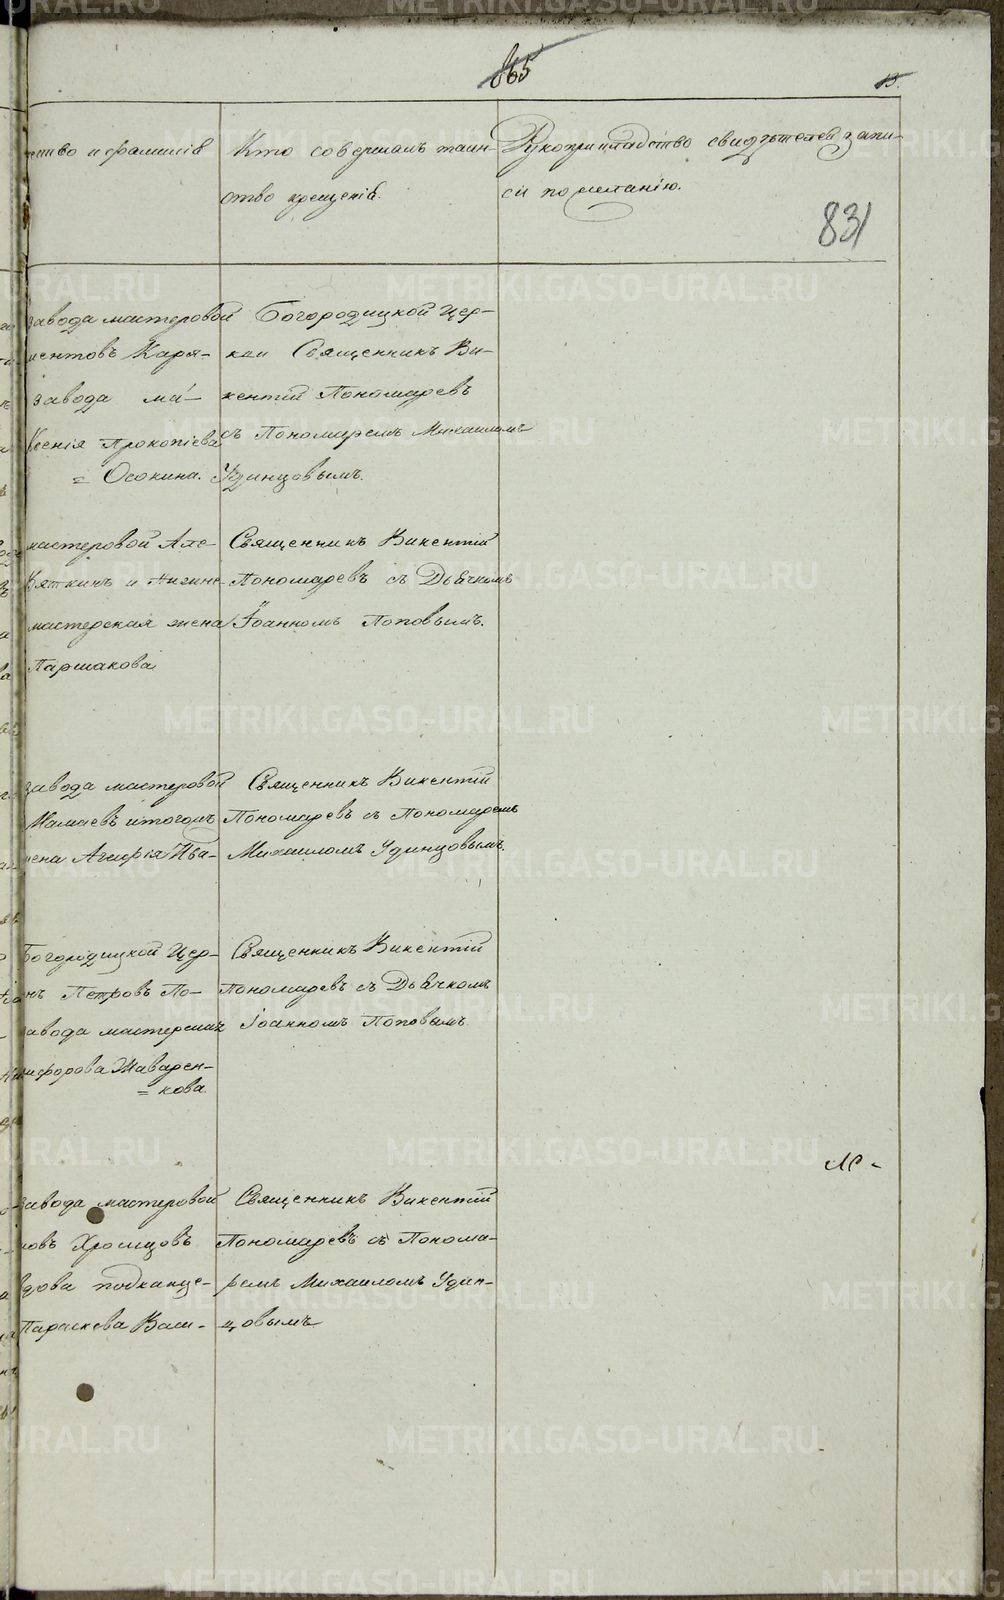 865
13.
ество и фамилія
Кто совершалъ таин-
ство крещенія.
Рукоприкладство свидѣтелей запи-
си по желанію.
831
завода мастеровой
ментовъ Каря-
завода ма-
ксенія Прокопіева
= Осокина.
Богородицкой Цер-
кви Священникъ Ви-
кентій Пономаревъ
съ Пономаремъ Михаиломъ
Удинцовымъ.
мастеровой Але-
Вяткинъ и
мастерская жена
Паршакова
Священникъ Викентій
Пономаревъ съ Дьячкомъ
Іоанномъ Поповымъ.
завода мастеровой
Мамаевъ и тогожъ
жена Агафія Ива-
Священникъ Викентій
Пономаревъ съ Пономаремъ
Михаиломъ Удинцовымъ.
Богородицкой Цер-
нъ Петровъ По-
завода мастерская
Никифорова Жаварен-
= кова.
Священникъ Викентій
Пономаревъ съ Дьячкомъ
Іоанномъ Поповымъ
завода мастеровой
новъ Хромцовъ
вдова подканце-
Параскева Васи-
Священникъ Викентій
Пономаревъ съ Понома-
ремъ Михаиломъ Удин-
цовымъ
METRIKI.GASO-URAL.RU